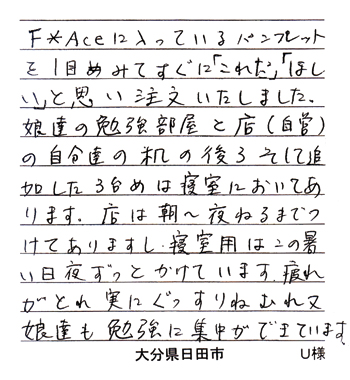 F*Aceに入っているパンフレット
を1目めみてすぐに「これだ」「ほし
い」と思い注文いたしました。
娘達の勉強部屋と店(自営)
の自分達の机の後ろそして追
加した3台めは寝室においてあ
ります。店は朝～夜ねるまでつ
けてありますし、寝室用はこの暑
い日夜ずっとかけています。疲れ
がとれ実にぐっすりねむれ又
娘達も勉強に集中ができています
大分県日田市 U様